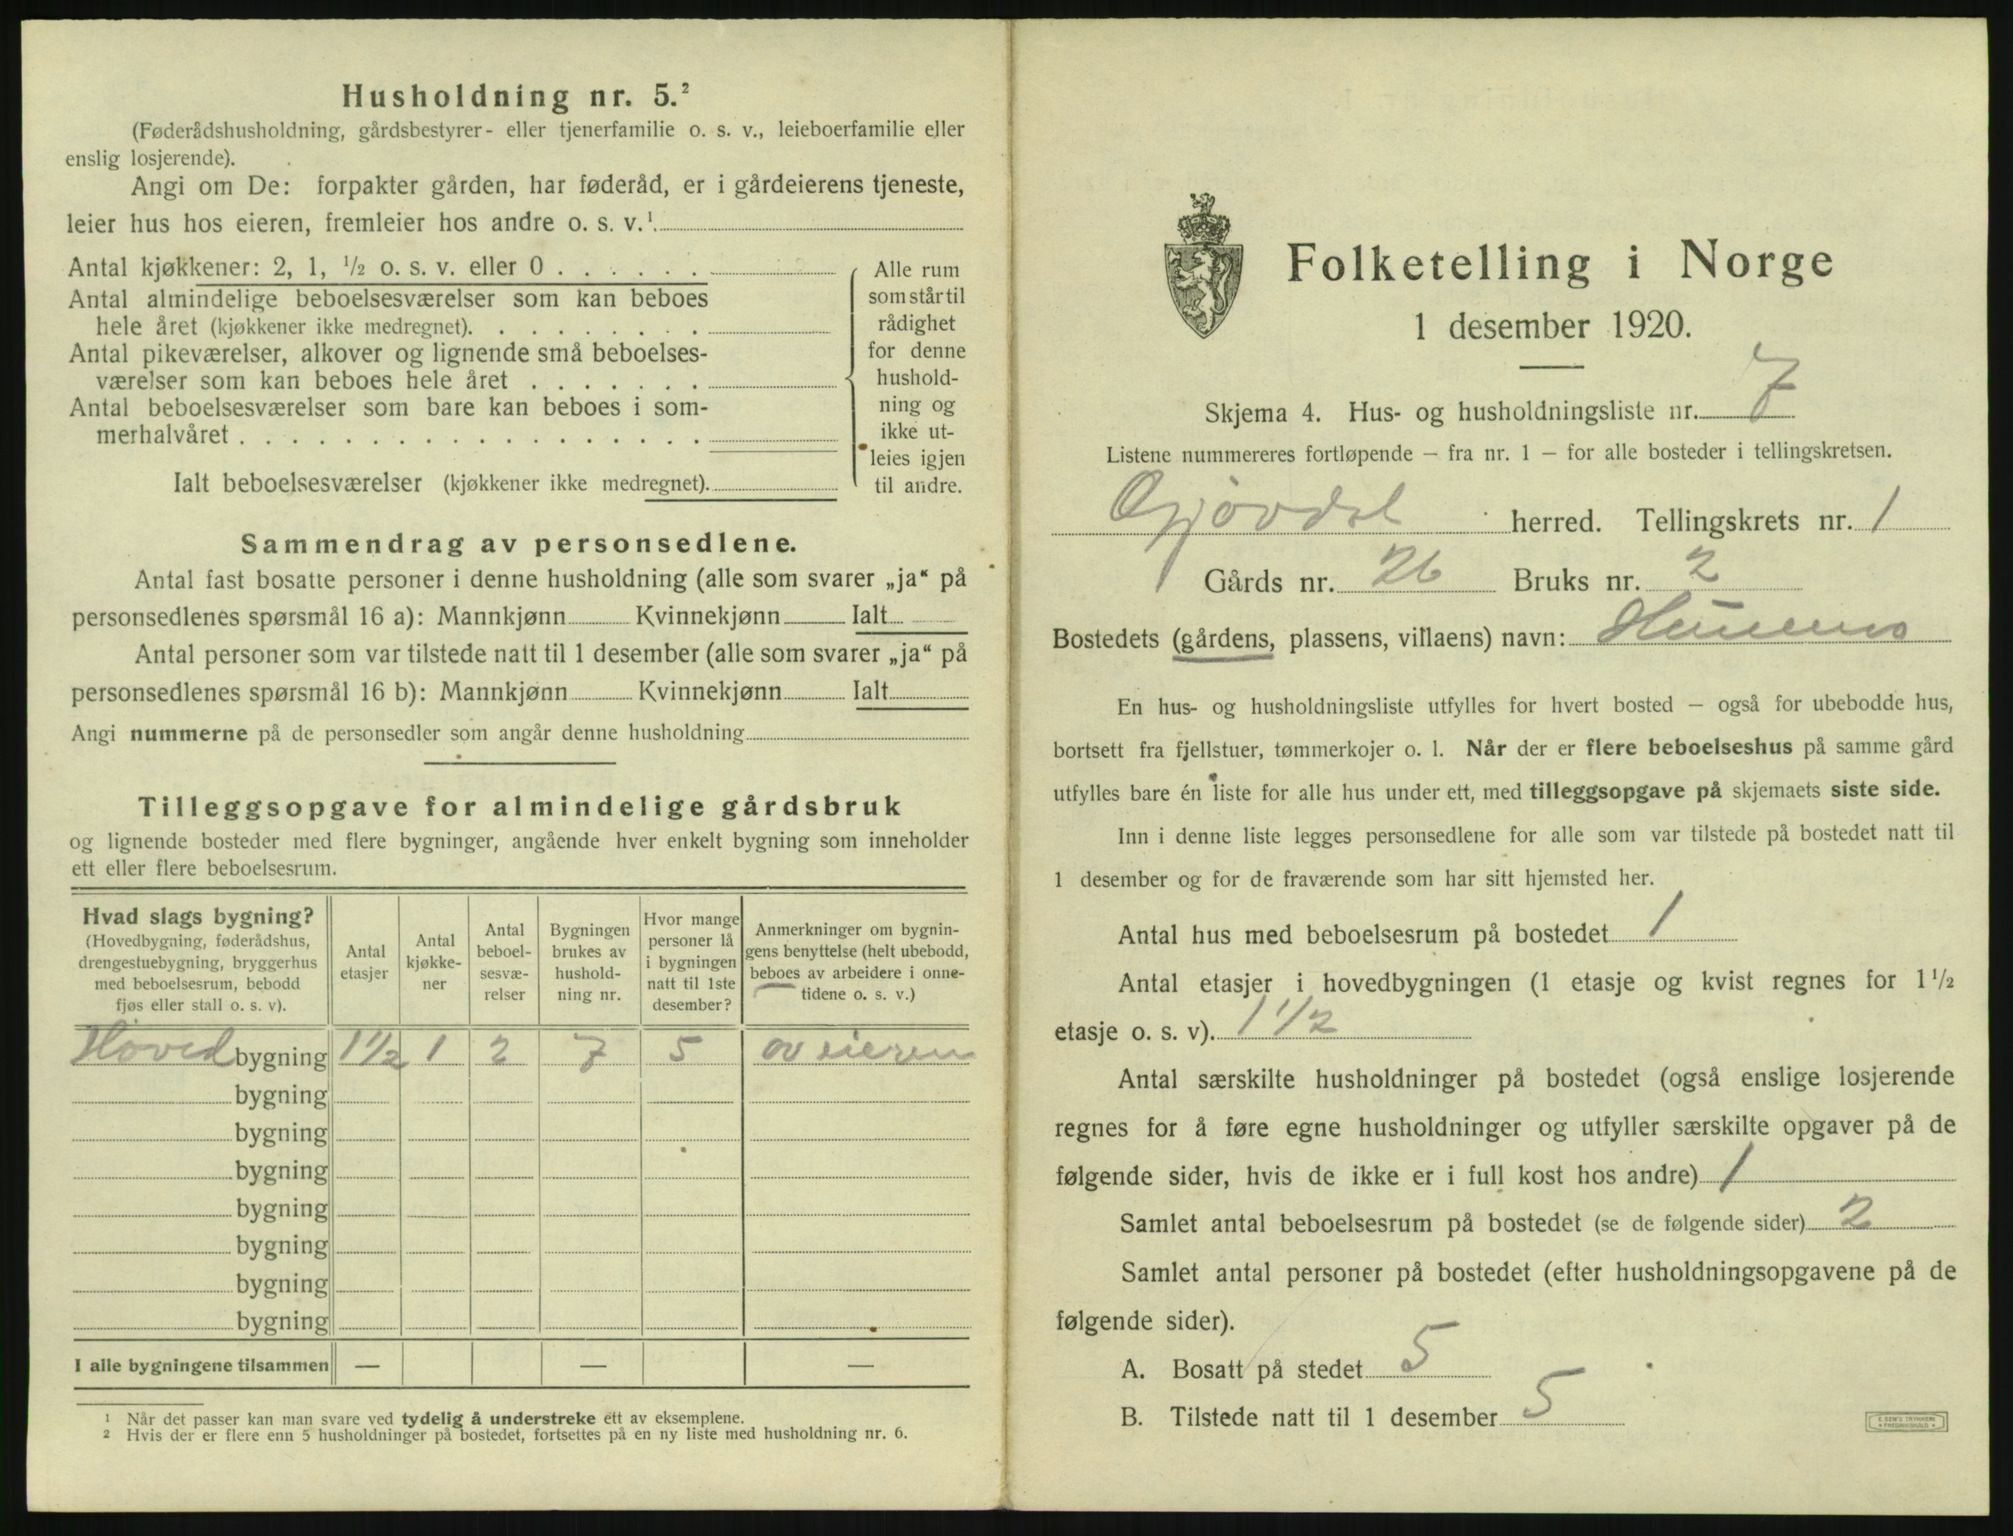 Husholdning nr. 5.²
(Føderådshusholdning, gårdsbestyrer- eller tjenerfamilie o. s. v., leieboerfamilie eller
enslig losjerende).
Angi om De: forpakter gården, har føderåd, er i gårdeierens tjeneste,
leier hus hos eieren, fremleier hos andre o. s. v.¹
Antal kjøkkener: 2, 1, ½ o. s. v. eller 0 . . . . . .
Antal almindelige beboelsesværelser som kan beboes
hele året (kjøkkener ikke medregnet). . . . . . . . .
Antal pikeværelser, alkover og lignende små beboelses-
værelser som kan beboes hele året . . . . . . .
Antal beboelsesværelser som bare kan beboes i som-
merhalvåret . . . . . . . . . . . . . . . . . .
Ialt beboelsesværelser (kjøkkener ikke medregnet).
Alle rum
som står til
rådighet
for denne
hushold-
ning og
ikke ut-
leies igjen
til andre.
Sammendrag av personsedlene.
Antal fast bosatte personer i denne husholdning (alle som svarer „ja“ på
personsedlenes spørsmål 16 a): Mannkjønn Kvinnekjønn Ialt
Antal personer som var tilstede natt til 1 desember (alle som svarer „ja“ på
personsedlenes spørsmål 16 b): Mannkjønn Kvinnekjønn Ialt
Angi nummerne på de personsedler som angår denne husholdning
Tilleggsopgave for almindelige gårdsbruk
og lignende bosteder med flere bygninger, angående hver enkelt bygning som inneholder
ett eller flere beboelsesrum.
Hvad slags bygning?
(Hovedbygning, føderådshus,
drengestuebygning, bryggerhus
med beboelsesrum, bebodd
fjøs eller stall o. s. v).
Antal
etasjer
Antal
kjøkke-
ner
Antal
beboel-
sesvæ-
relser
Bygningen
brukes av
hushold-
ning nr.
Hvor mange
personer lå
i bygningen
natt til 1ste
desember?
Anmerkninger om bygnin-
gens benyttelse (helt ubebodd,
beboes av arbeidere i onne-
tidene o. s. v.)
Hoved bygning 1½ 1 2 7 5 av eieren
bygning
bygning
bygning
bygning
bygning
bygning
bygning
I alle bygningene tilsammen — — —
¹ Når det passer kan man svare ved tydelig å understreke ett av eksemplene.
² Hvis der er flere enn 5 husholdninger på bostedet, fortsettes på en ny liste med husholdning nr. 6.
Folketelling i Norge
1 desember 1920.
Skjema 4. Hus- og husholdningsliste nr. 7
Listene nummereres fortløpende — fra nr. 1 — for alle bosteder i tellingskretsen.
Gjøvdal herred. Tellingskrets nr. 1
Gårds nr. 26 Bruks nr. 2
Bostedets (gårdens, plassens, villaens) navn:
En hus- og husholdningsliste utfylles for hvert bosted — også for ubebodde hus,
bortsett fra fjellstuer, tømmerkojer o. l. Når der er flere beboelseshus på samme gård
utfylles bare én liste for alle hus under ett, med tilleggsopgave på skjemaets siste side.
Inn i denne liste legges personsedlene for alle som var tilstede på bostedet natt til
1 desember og for de fraværende som har sitt hjemsted her.
Antal hus med beboelsesrum på bostedet 1
Antal etasjer i hovedbygningen (1 etasje og kvist regnes for 1½
etasje o. s. v). 1½
Antal særskilte husholdninger på bostedet (også enslige losjerende
regnes for å føre egne husholdninger og utfyller særskilte opgaver på de
følgende sider, hvis de ikke er i full kost hos andre) 1
Samlet antal beboelsesrum på bostedet (se de følgende sider) 2
Samlet antal personer på bostedet (efter husholdningsopgavene på de
følgende sider).
A. Bosatt på stedet 5
B. Tilstede natt til 1 desember 5